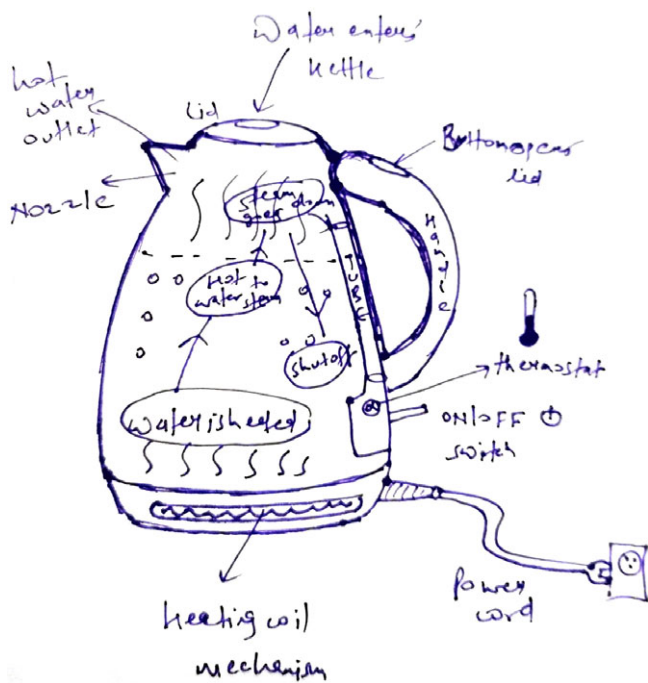 Water enters
kettle
hot
water
outlet
Lid
Button opens
lid
Nozzle
steam
goes down
Handle
Tube
Hot to
water steam
shutoff
thermostat
water is heated
ON/OFF
switch
Power
cord
heating coil
mechanism